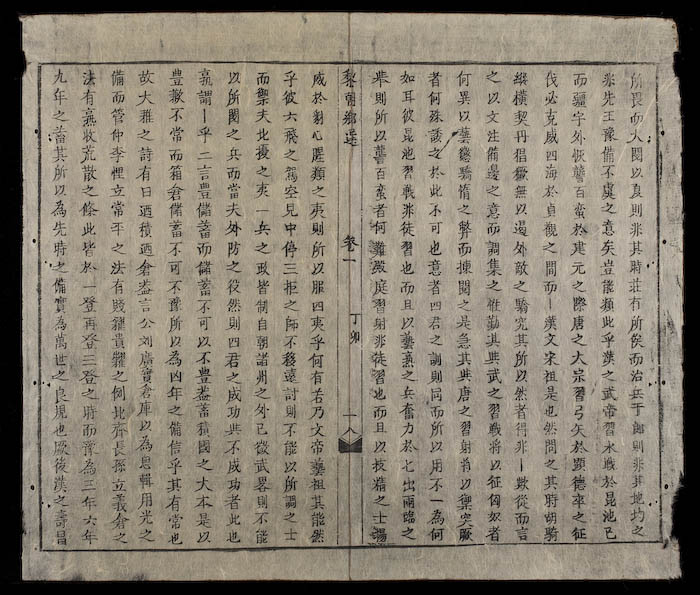 所畏而大閱以夏則非其時莊有所俟而治兵于郎則非其地均之
非先王豫備不虞之意矣豈能類此乎漢之武帝習水戰於昆池已
而疆宇外恢讋百蛮於建元之際唐之大宗習弓矢於顯德卒之征
伐必克威四海於貞觀之間而一漢文宋祖是也然問之其時胡騎
縱橫契丹猖獗無以遏外敵之驕究其所以然者得非一數從而言
之以文注備邊之意而調集之惟勤其與武之習戰將以征匈奴者
何異以藝懲驕惰之弊而揀閱之是急其與唐之習射將以禦突厥
者何殊議之於此不可也意者四君之訓則同而所以用不一為何
如耳彼昆池習戰非徒習也而且以藝熹之兵奮力於七出兩臨之
舉則所以讋百蛮者何難殿庭習射非徒習也而且以技精之士錫
黎朝鄉選 卷一 丁卯 一八
威於剺心腥類之夷則所以服四夷乎何有若乃文帝藝祖其能然
乎彼六飛之駕空見中停三拒之師不移遠討則不能以所調之士
而禦夫北擾之夷一兵之政皆制自朝諸州之外已徵武畧則不能
以所閱之兵而當夫外防之役然則四君之成功與不成功者此也
孰謂一乎二言豊儲蓄而儲蓄不可以不豊盖蓄積國之大本是以
豊歉不常而箱倉儲蓄不可不豫所以為四年之備信乎其有當也
故大雅之詩有曰迺積迺倉盖言公刘廣實倉庫以為思輯用光之
備而管仲李悝立常平之法有賤糴貴糶之例北齊長孫立義倉之
法有熹收荒散之條此皆於一登再登三登之時而豫為三年六年
九年之蓄其所以為先時之備實為萬世之良規也厥後漢之壽昌